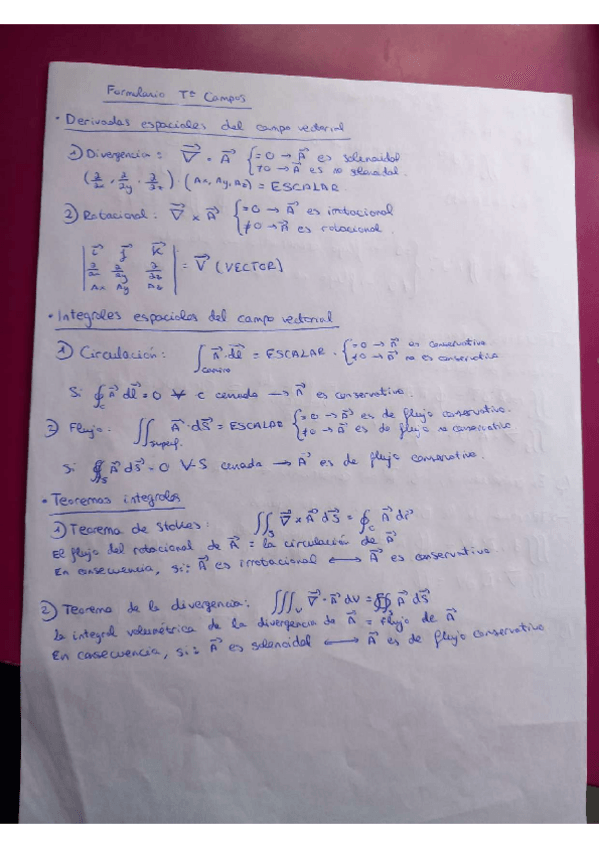 Formulario Tª Campos
• Derivadas espaciales del campo vectorial
1) Divergencia: ∇⃗ · A⃗ { =0 → A⃗ es solenoidal
≠0 → A⃗ es no solenoidal.
(∂/∂x, ∂/∂y, ∂/∂z) · (Ax, Ay, Az) = ESCALAR
2) Rotacional: ∇⃗ x A⃗ { =0 → A⃗ es irrotacional
≠0 → A⃗ es rotacional.
| i⃗ j⃗ k⃗ |
| ∂/∂x ∂/∂y ∂/∂z | = V⃗ (VECTOR)
| Ax Ay Az |
• Integrales espaciales del campo vectorial
1) Circulación: ∫camino A⃗·dl⃗ = ESCALAR · { =0 → A⃗ es conservativo
≠0 → A⃗ no es conservativo
Si ∮c A⃗ dl⃗ = 0 ∀ c cerrada → A⃗ es conservativo.
2) Flujo: ∬superf. A⃗·dS⃗ = ESCALAR { =0 → A⃗ es de flujo conservativo.
≠0 → A⃗ es de flujo no conservativo
Si ∯S A⃗ dS⃗ = 0 ∀ S cerrada → A⃗ es de flujo conservativo.
• Teoremas integrales
1) Teorema de Stokes: ∬S ∇⃗ x A⃗ dS⃗ = ∮c A⃗ dr⃗
El flujo del rotacional de A⃗ = la circulación de A⃗
En consecuencia, si: A⃗ es irrotacional ⟷ A⃗ es conservativo.
2) Teorema de la divergencia: ∭V ∇⃗ · A⃗ dV = ∯S A⃗ dS⃗
la integral volumétrica de la divergencia de A⃗ = flujo de A⃗
En consecuencia, si: A⃗ es solenoidal ⟷ A⃗ es de flujo conservativo